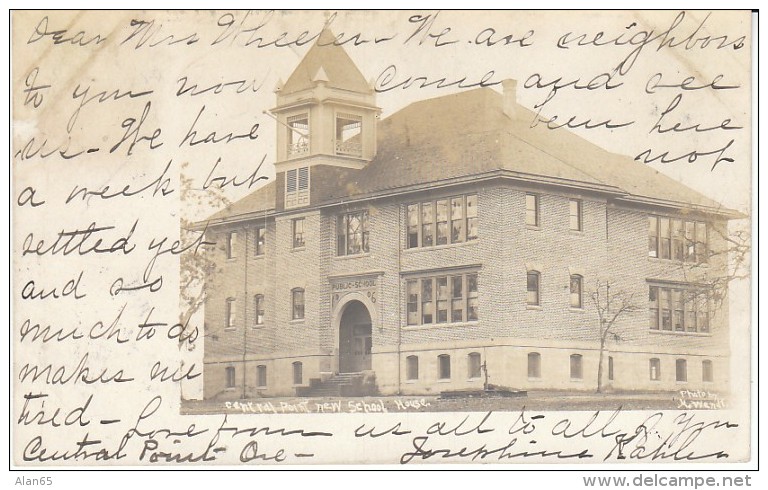 Dear Mrs Wheeler - We are neighbors
to you now Come and see
us - We have been here
a week but not
settled yet
and so
much to do
makes me
tired - Love from us all to all of you
Central Point Ore - Josephine Kahler
PUBLIC-SCHOOL
1906
Central Point new School House.
Photo by
Alan65
© delcampe.net